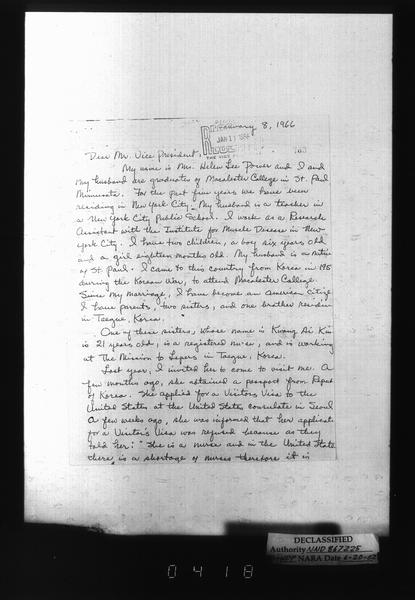 January 8, 1966
JAN 17 1966
THE VICE
Dear Mr. Vice President,
My name is Mrs. Helen Lee Power and I and
my husband are graduates of Macalester College in St. Paul
Minnesota. For the past few years we have been
residing in New York City. My husband is a teacher in
a New York City Public School. I work as a Research
Assistant with the Institute for Muscle Disease in New
York City. I have two children, a boy six years old
and a girl eighteen months old. My husband is a native
of St. Paul. I came to this country from Korea in 195
during the Korean War, to attend Macalester College.
Since my marriage, I have become an American Citize
I have parents, two sisters, and one brother
in Taegue, Korea.
One of these sisters, whose name is Kwang Ai Kim
is 21 years old, is a registered nurse, and is working
at The Mission to Lepers in Taegue, Korea.
Last year, I invited her to come to visit me. A
few months ago, she attained a passport from Repub
of Korea. She applied for a Visitors Visa to the
United States at the United States consulate in Seoul
A few weeks ago, she was informed that her applicati
for a Visitor's Visa was refused because as they
told her: "She is a nurse and in the United State
there is a shortage of nurses therefore it is
DECLASSIFIED
Authority NND 867225
NARA Date 6-20-02
0418